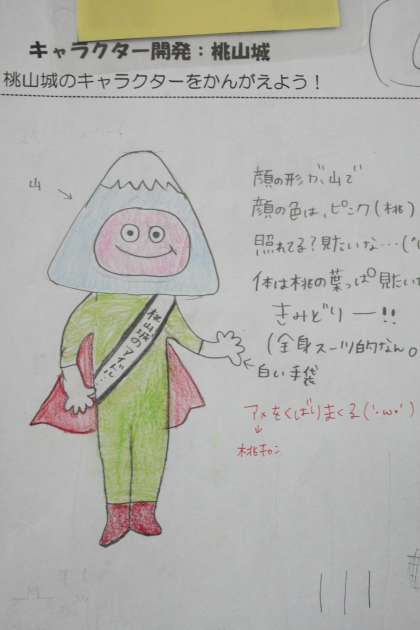 キャラクター開発：桃山城
桃山城のキャラクターをかんがえよう！
山
顔の形が、山で
顔の色は、ピンク(桃)
照れてる？見たいな…(
体は桃の葉っぱ見たいな
きみどりー!!
(全身スーツ的なん。
白い手袋
桃山城のアイドル…
アメをくばりまくる('·ω·')